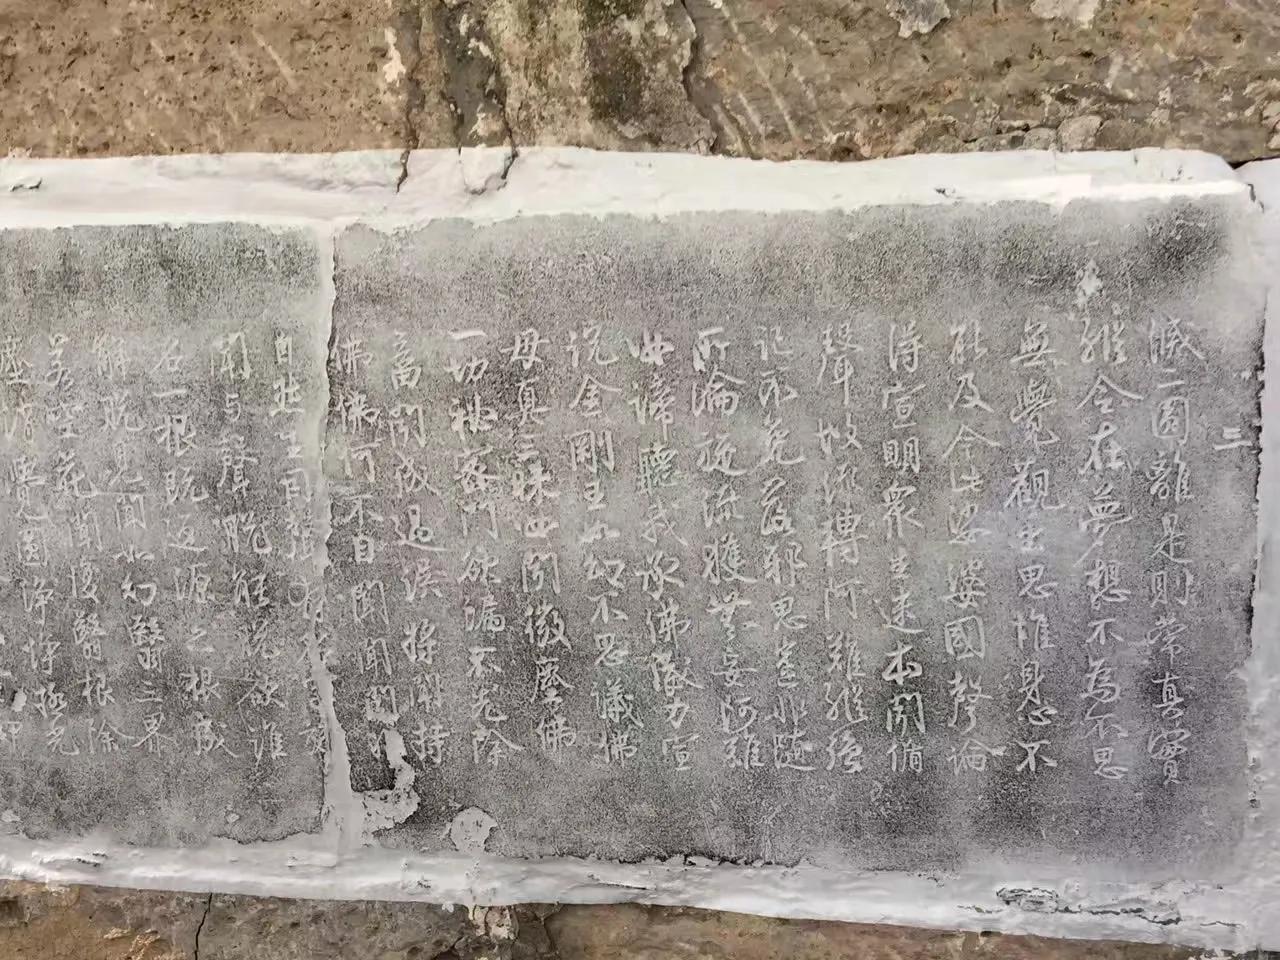 三
滅二圓離是則常真實
縱令在夢想不為不思
無覺觀出思惟身心不
能及今此娑婆國聲論
得宣明眾生迷本聞循
聲故流轉阿難縱強
記不免落邪思豈非隨
所淪旋流獲無妄阿難
汝諦聽我承佛威力宣
說金剛王如幻不思議佛
母真三昧汝聞微塵佛
一切秘密門欲漏不先除
畜聞成過誤將聞持
佛佛何不自聞聞聞
自然生因聲有名字旋
聞與聲脫能脫欲誰
名一根既返源六根成
解脫見聞如幻翳三界
若空花聞復翳根除
塵銷覺圓淨淨極光